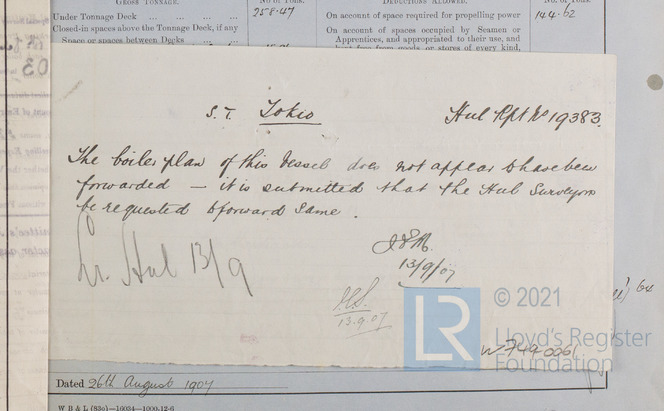 GROSS TONNAGE.
No. of Tons.
DEDUCTIONS ALLOWED.
No. of Tons.
Under Tonnage Deck ... ... ...
258.47
On account of space required for propelling power
144.62
Closed-in spaces above the Tonnage Deck, if any
On account of spaces occupied by Seamen or
Space or spaces between Decks ...
Apprentices, and appropriated to their use, and
kept free from goods or stores of every kind,
03
S.T. Tokio
Hul Rpt No 19383.
The boiler plan of this Vessel does not appear to have been
forwarded — it is submitted that the Hul Surveyors
be requested to forward same.
Lr. Hul 13/9
13/9/07
13.9.07
© 2021
LR
Lloyd's Register
Foundation
W-749-0061
Dated 26th August 1907
W B & L (83o)—16034—1000.12-6